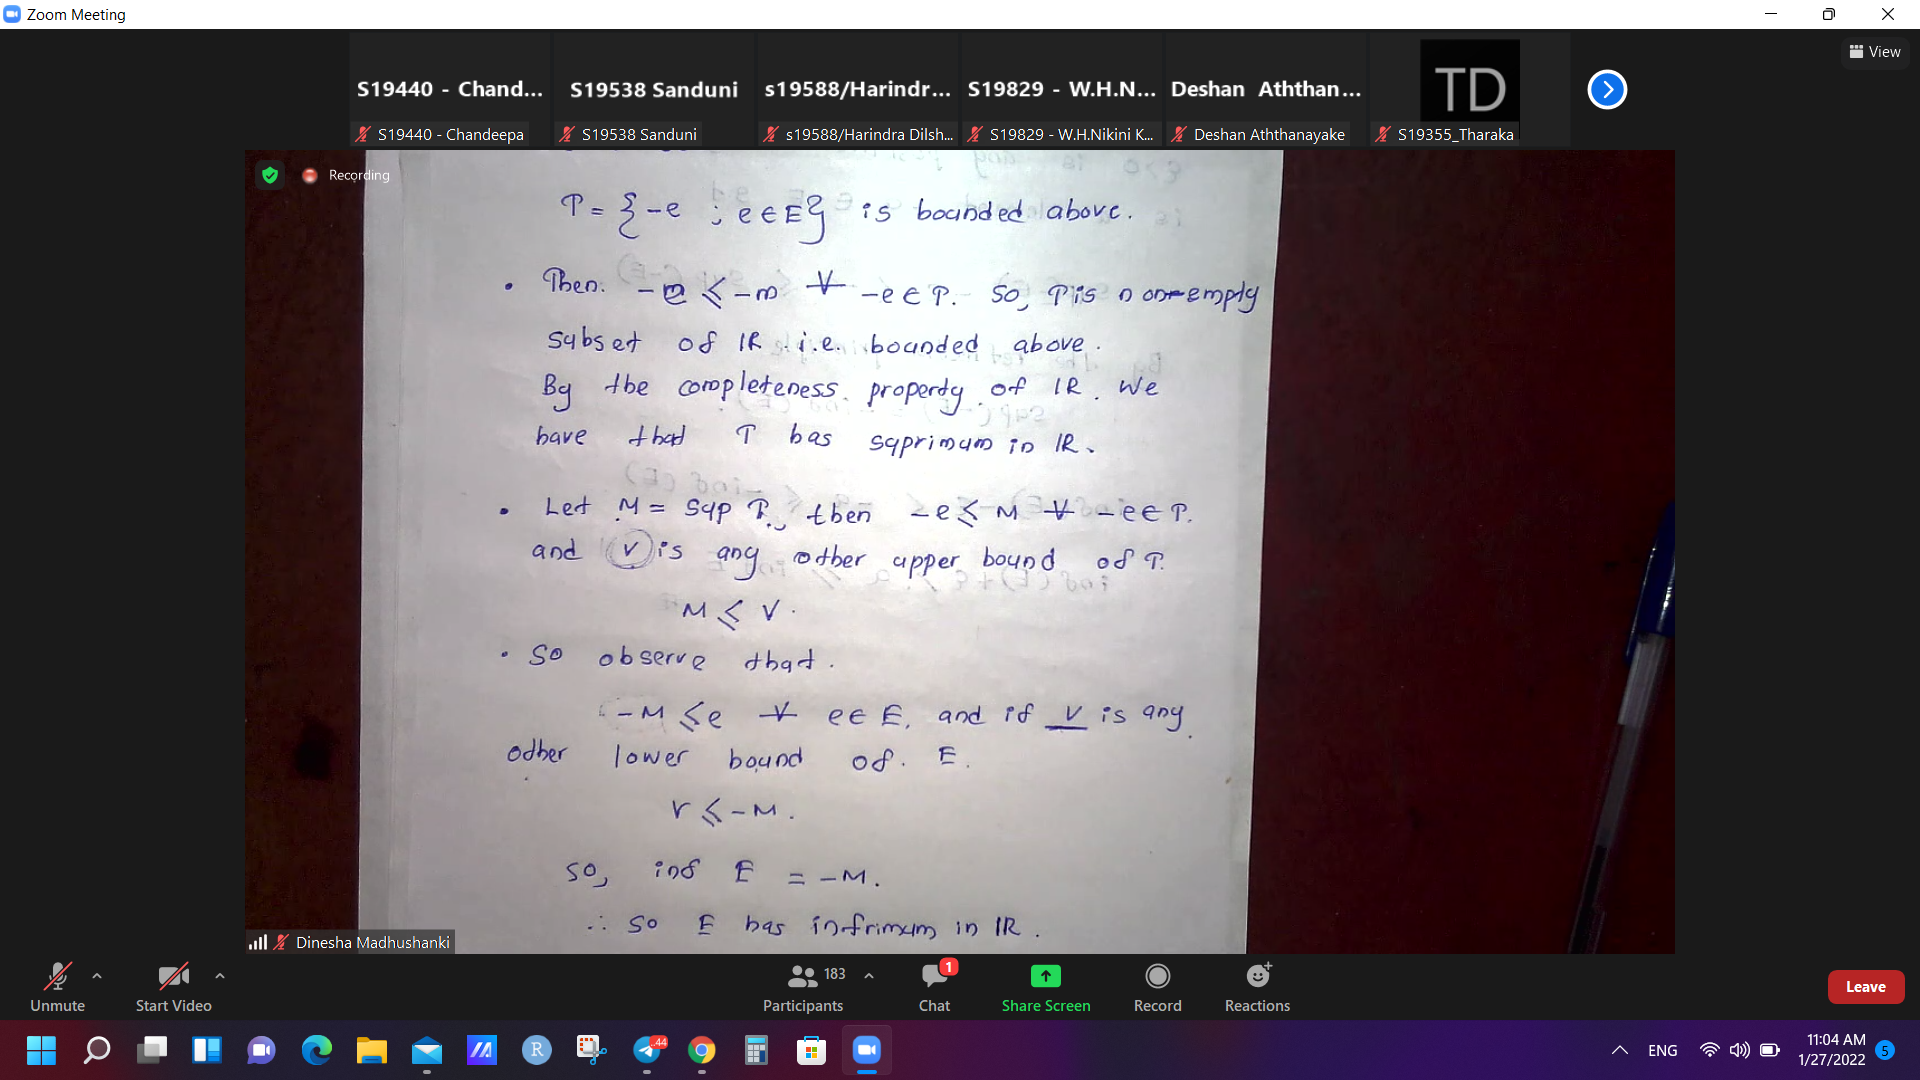 Zoom Meeting
View
S19440 - Chand...
S19538 Sanduni
s19588/Harindr...
S19829 - W.H.N...
Deshan Aththan...
TD
S19440 - Chandeepa
S19538 Sanduni
s19588/Harindra Dilsh...
S19829 - W.H.Nikini K...
Deshan Aththanayake
S19355_Tharaka
Recording
T = {-e ; e ∈ E} is bounded above.
• Then. -e ⩽ -m ∀ -e ∈ T. So, T is non-empty
subset of IR i.e. bounded above.
By the completeness property of IR. We
have that T has suprimum in IR.
• Let M = Sup T, then -e ⩽ M ∀ -e ∈ T.
and v is any other upper bound of T.
M ⩽ V.
• So observe that.
-M ⩽ e ∀ e ∈ E, and if v is any
other lower bound of. E.
v ⩽ -M.
so, inf E = -M.
∴ so E has infrimum in IR.
Dinesha Madhushanki
Unmute
Start Video
183
Participants
1
Chat
Share Screen
Record
Reactions
Leave
R
44
ENG
11:04 AM
1/27/2022
5